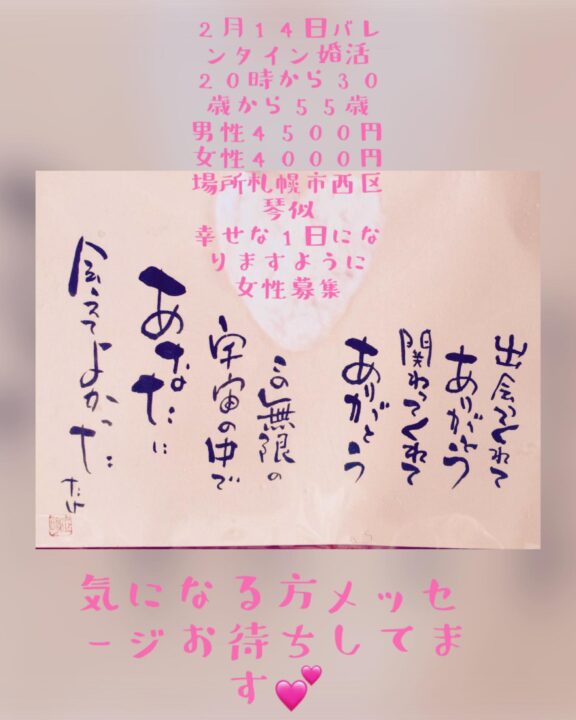 2月14日バレ
ンタイン婚活
20時から30
歳から55歳
男性4500円
女性4000円
場所札幌市西区
琴似
幸せな1日にな
りますように
女性募集
出会ってくれて
ありがとう
関わってくれて
ありがとう
この無限の
宇宙の中で
あなたに
会えてよかった
たけ
気になる方メッセ
ージお待ちしてま
す💕